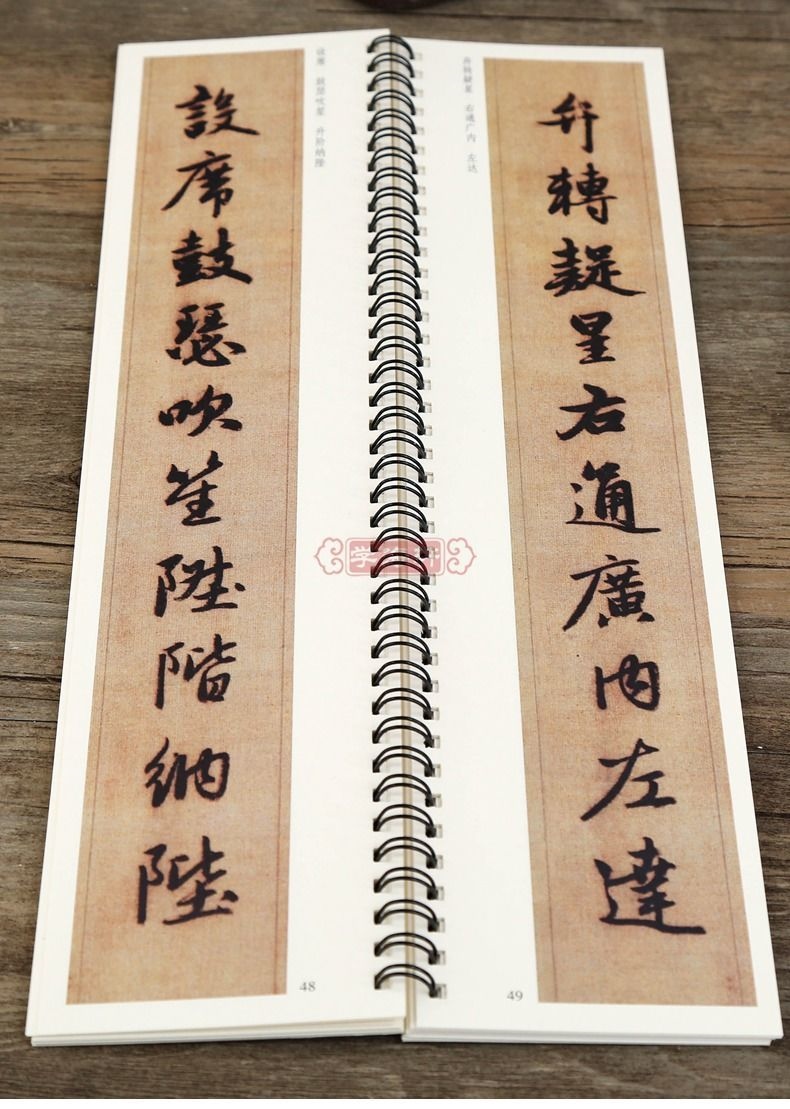 设席 鼓瑟吹笙 升阶纳陛
設席鼓瑟吹笙陞階納陛
48
弁转疑星 右通广内 左达
弁轉疑星右通廣内左達
49